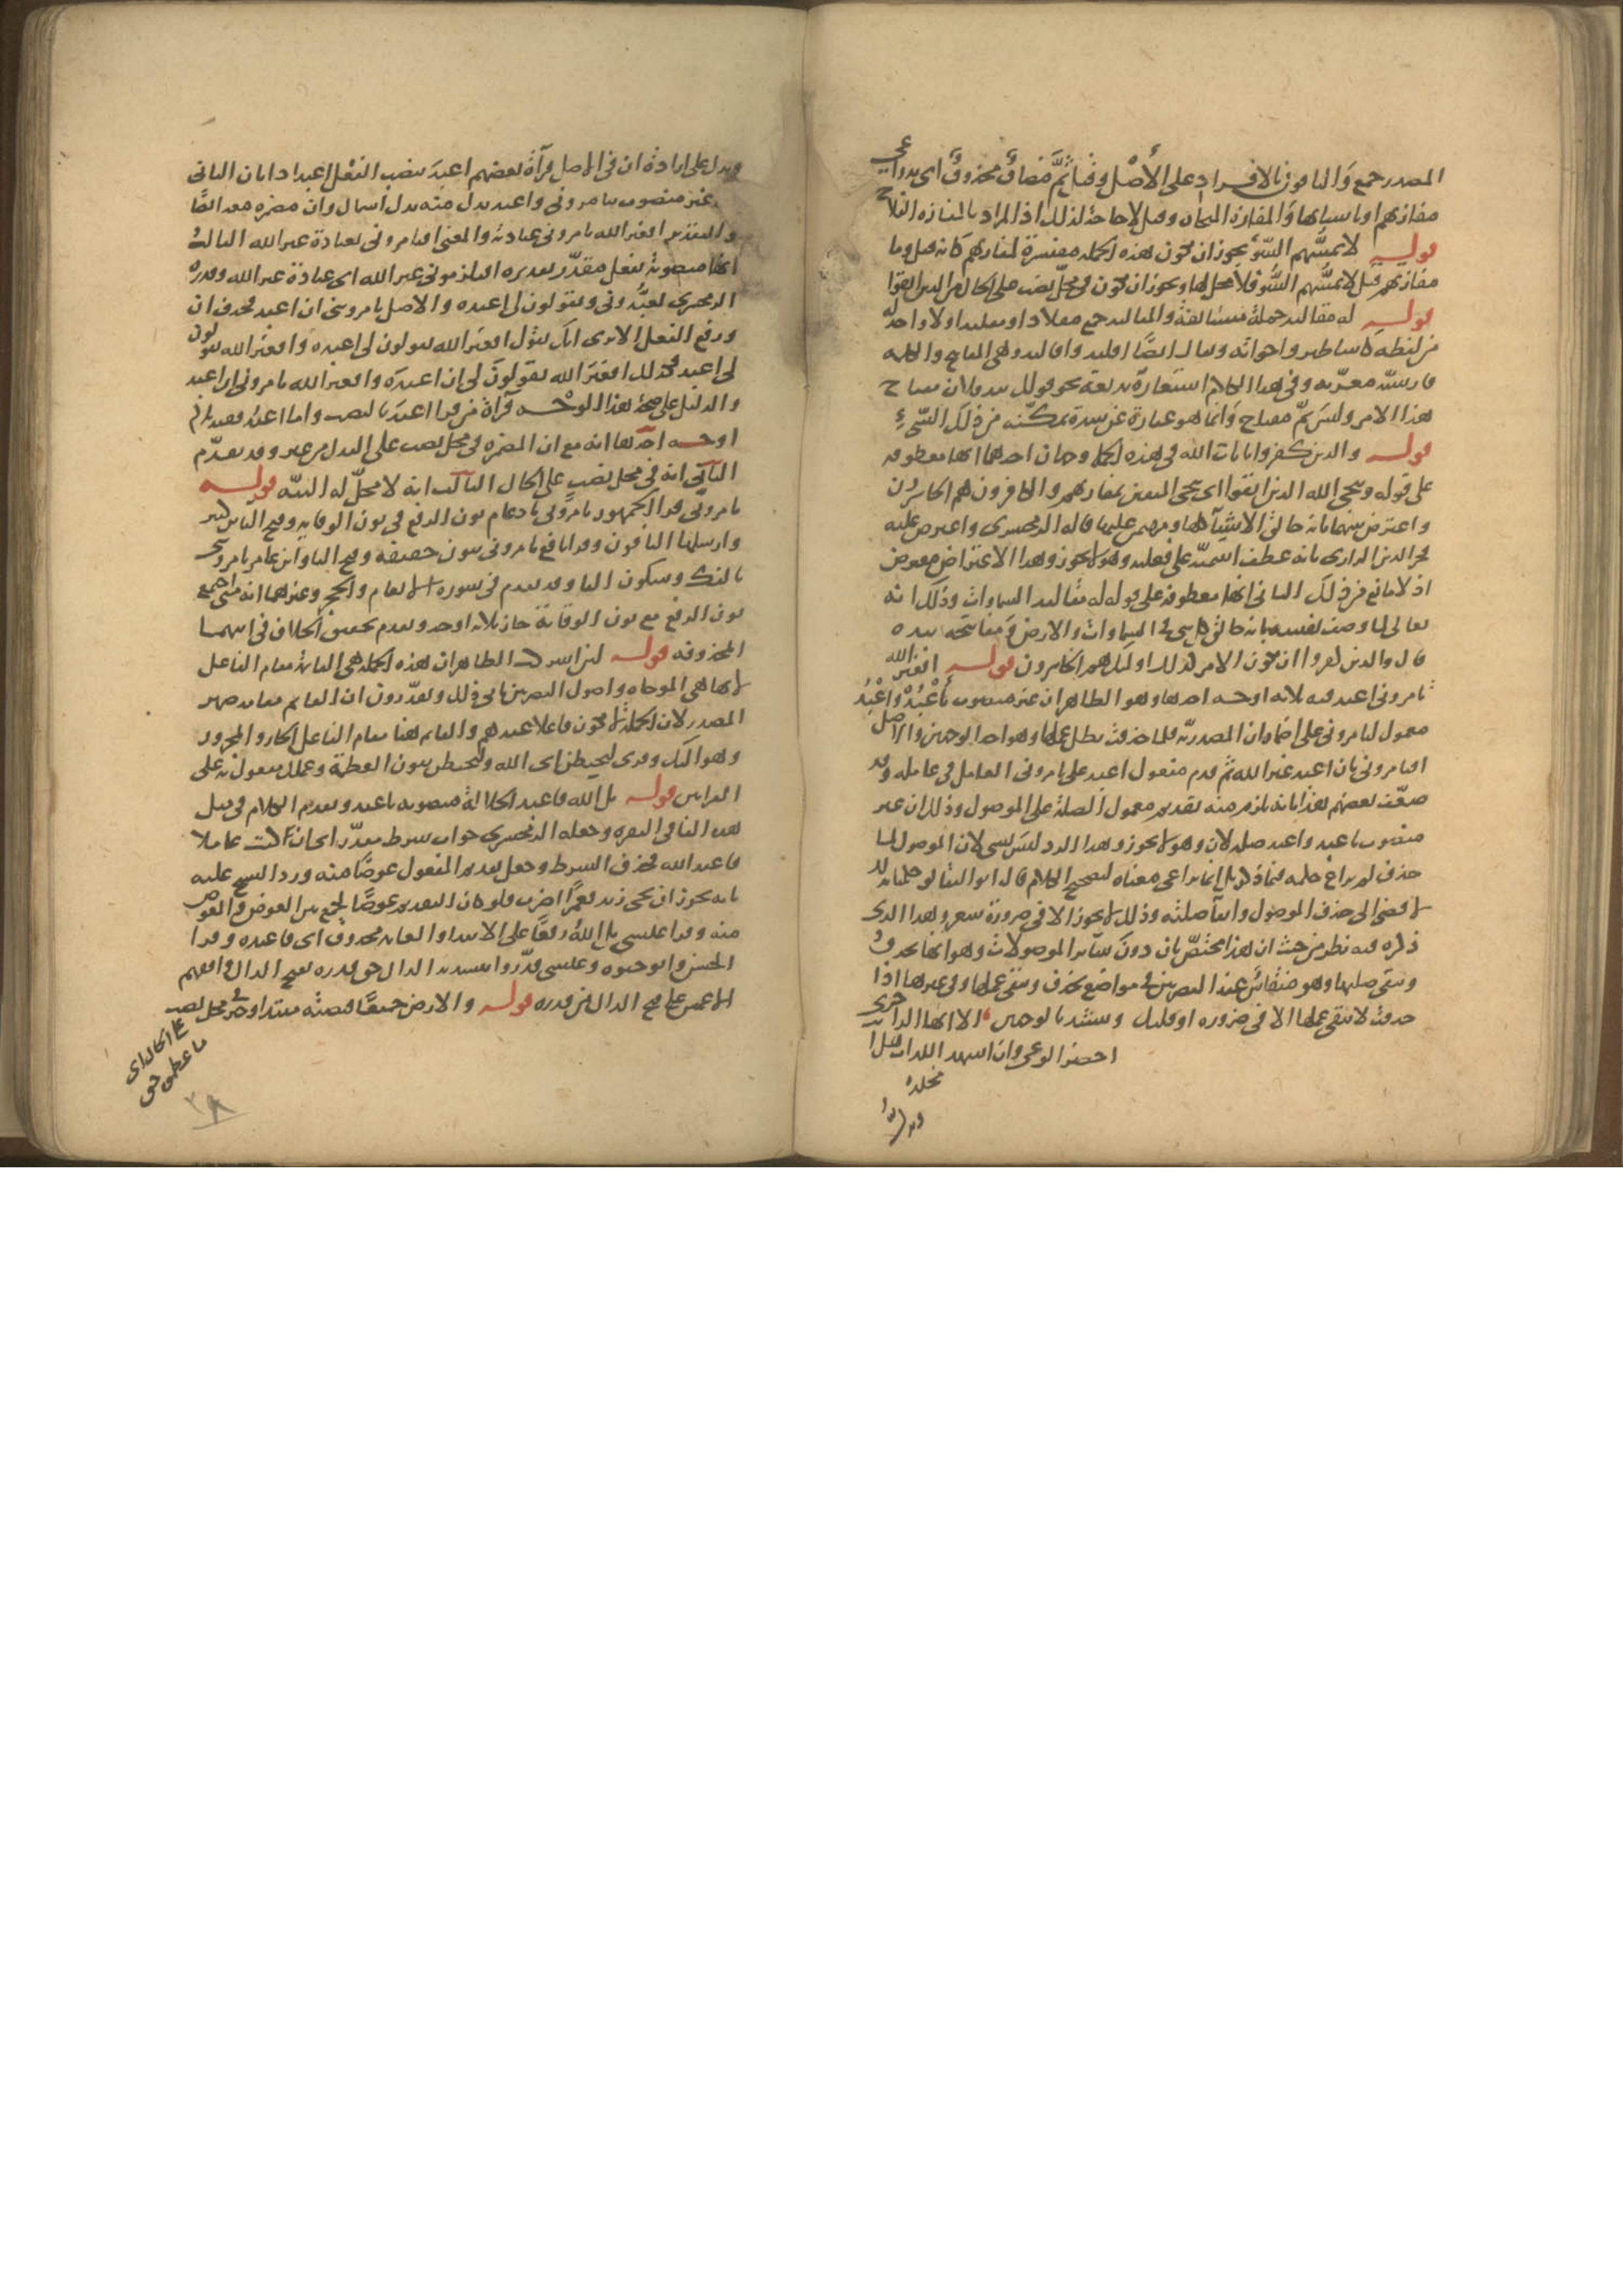 المصدر جمع والباقون بالافراد على الأصل وقيل ثَمَّ مضاف محذوف اى بدواعى
مفازتهم او باسبابها والمفازة المنجاة وقيل لا حاجة لذلك اذ المراد بالمفازة الفلاح
قوله لا يمسهم السوء يجوز ان تكون هذه الجملة مفسرة لمفازتهم كانه قيل وما
مفازتهم قيل لا يمسهم السوء فلا محل لها ويجوز ان تكون فى محل نصب على الحال من الذين اتقوا
قوله له مقاليد جملة مستانفة والمقاليد جمع مقلاد او مقليد او لا واحد له
من لفظه كاساطير واخواته ويقال ايضا اقليد واقاليد وهى المفاتيح والكلمة
فارسية معربة وفى هذا الكلام استعارة بديعة نحو قولك بيد فلان مفتاح
هذا الامر وليس ثم مفتاح وانما هو عبارة عن شدة تمكنه من ذلك الشىء
قوله والذين كفروا بايات الله فى هذه الجملة وجهان احدهما انها معطوفة
على قوله وينجى الله الذين اتقوا اى ينجى المتقين بمفازتهم والكافرون هم الخاسرون
واعترض بينهما بانه خالق الاشياء كلها ومهيمن عليها قاله الزمخشرى واعترض عليه
فخر الدين الرازى بانه عطف اسمية على فعلية وهو لا يجوز وهذا الاعتراض معترض
اذ لا مانع من ذلك الثانى انها معطوفة على قوله له مقاليد السماوات وذلك انه
تعالى لما وصف نفسه بانه خالق كل شى فى السماوات والارض ومفاتيحه بيده
قال والذين كفروا ان يكون الامر كذلك اولئك هم الخاسرون قوله افغير الله
تامرونى اعبد فيه ثلاثة اوجه احدها وهو الظاهر ان غير منصوب بأعبد وأعبد
معمول لتامرونى على اضمار ان المصدرية فلما حذفت بطل عملها وهو احد الوجهين والاصل
افتامرونى بان اعبد غير الله ثم قدم مفعول اعبد على تامرونى العامل فى عامله وقد
ضعف بعضهم هذا بانه يلزم منه تقديم معمول الصلة على الموصول وذلك ان غير
منصوب باعبد واعبد صلة لان وهو لا يجوز وهذا الرد ليس بشى لان الموصول لما
حذف لم يراع حكمه فيما ذكر بل انما يراعى معناه لتصحيح الكلام قال ابو البقا لو حكمنا بذلك
لافضى الى حذف الموصول وابقا صلته وذلك لا يجوز الا فى ضرورة شعر وهذا الذى
ذكره فيه نظر من حيث ان هذا مختص بان دون سائر الموصولات وهو انها تحذف
وتبقى صلتها وهو منقاس عند البصريين فى مواضع تحذف ويبقى عملها وفى غيرها اذا
حذفت لا يبقى عملها الا فى ضرورة او قليل وينشد بالوجهين الا ايهذا الزاجرى
احضر الوغى وان اشهد اللذات هل انت
مخلدى
ويدل
ويدل على ارادة ان فى الاصل قراة بعضهم اعبد بنصب الفعل اعتدادا بان الثانى
ان غير منصوب بتامرونى واعبد بدل منه بدل اشتمال وان مضمرة معه ايضا
والتقدير افغير الله تامرونى عبادته والمعنى افتامرونى بعبادة غير الله الثالث
انها منصوبة بفعل مقدر تقديره افتلزمونى غير الله اى عبادة غير الله وقدره
الزمخشرى تعبدونى وتقولون لى اعبده والاصل تامروننى ان اعبد فحذف ان
ورفع الفعل الا ترى انك تقول افغير الله تقولون لى اعبده وافغير الله تقولون
لى اعبد فكذلك افغير الله تقولون لى ان اعبده وافغير الله تامرونى ان اعبد
والدليل على صحة هذا الوجه قراة من قرا اعبد بالنصب واما اعبد ففيه ثلاثة
اوجه احدها انه مع ان المضمرة فى محل نصب على البدل من غير وقد تقدم
الثانى انه فى محل نصب على الحال الثالث انه لا محل له البتة قوله
تامرونى قرا الجمهور تامرونى بادغام نون الرفع فى نون الوقاية وفتح اليا ابن كثير
وارسلها الباقون وقرا نافع تامرونى بنون خفيفة وفتح اليا وابن عامر تامروننى
بالفك وسكون اليا وقد تقدم فى سورة الانعام والحجر وغيرهما انه متى اجتمع
نون الرفع مع نون الوقاية جاز ثلاثة اوجه وتقدم تحقيق الخلاف فى ايتهما
المحذوفة قوله لئن اشركت الظاهر ان هذه الجملة هى القائمة مقام الفاعل
لانها هى الموحاة واصول البصريين تابى ذلك ويقدرون ان القائم مقامه ضمير
المصدر لان الجملة لا تكون فاعلا عندهم والقائم هنا مقام الفاعل الجار والمجرور
وهو اليك وقرى ليحبطن اى الله ولنحبطن بنون العظمة وعملك مفعول به على
القراتين قوله بل الله فاعبد الجلالة منصوبة باعبد وتقدم الكلام فى مثل
هذه الفا فى البقرة وجعله الزمخشرى جواب شرط مقدر اى ان كنت عاقلا
فاعبد الله فحذف الشرط وجعل تقديم المفعول عوضا منه ورد الشيخ عليه
بانه يجوز ان يجى زيد فعمرا اضرب فلو كان التقديم عوضا لجمع بين العوض والمعوض
منه وقرا عيسى بل الله رفعا على الابتدا والعائد محذوف اى فاعبده وقرا
الحسن وابو حيوة وعيسى قدروا بتشديد الدال حق قدره بفتح الدال وافقهم
الاعمش على فتح الدال من قدره قوله والارض جميعا قبضته مبتدا وخبر فى محل نصب
على الحال اى
ما عظموه حق